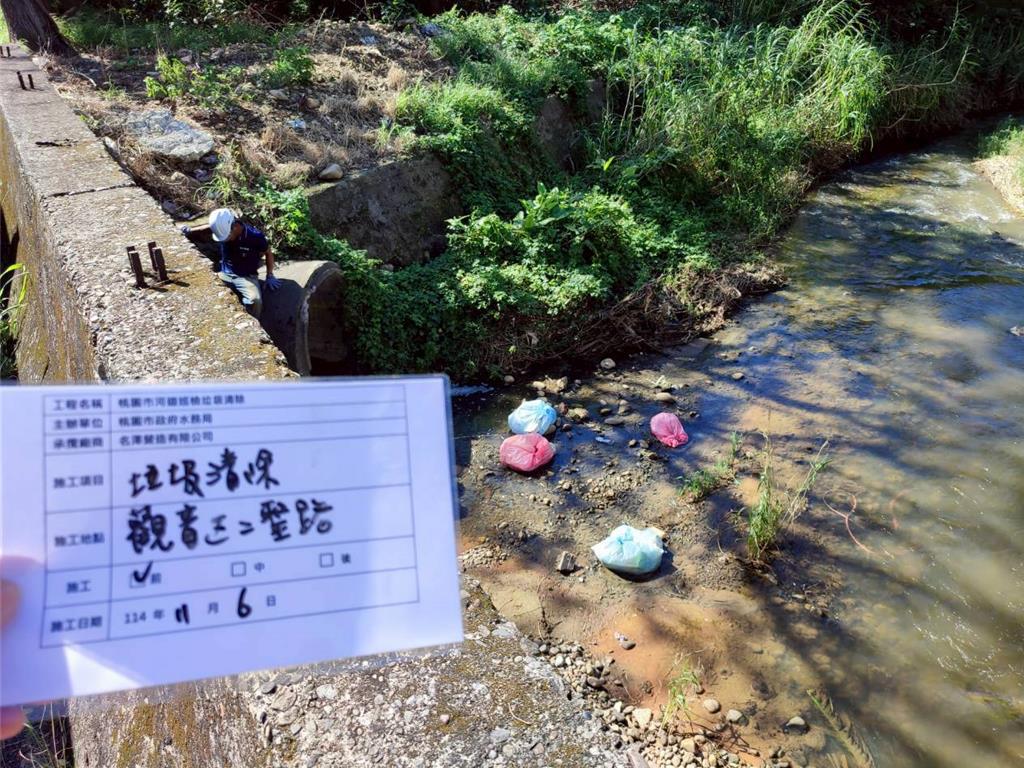 工程名稱 桃園市河鎮巡檢垃圾清除
主辦單位 桃園市政府水務局
承攬廠商 名澤營造有限公司
施工項目 垃圾清除
施工地點 觀音區二聖路
施工 ✓前 □中 □後
施工日期 114 年 11 月 6 日